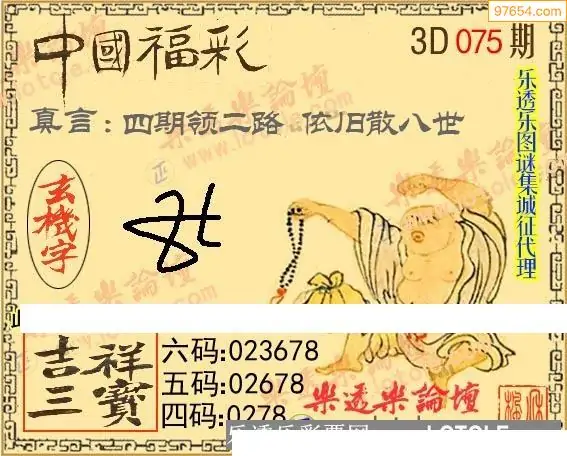 97654.com
中國福彩
3D 075 期
真言：四期领二路 依旧散八世
乐透乐图谜集城征代理
玄機字
吉祥三寶
六码:023678
五码:02678
四码:0278
樂透樂論壇
乐透乐彩票网